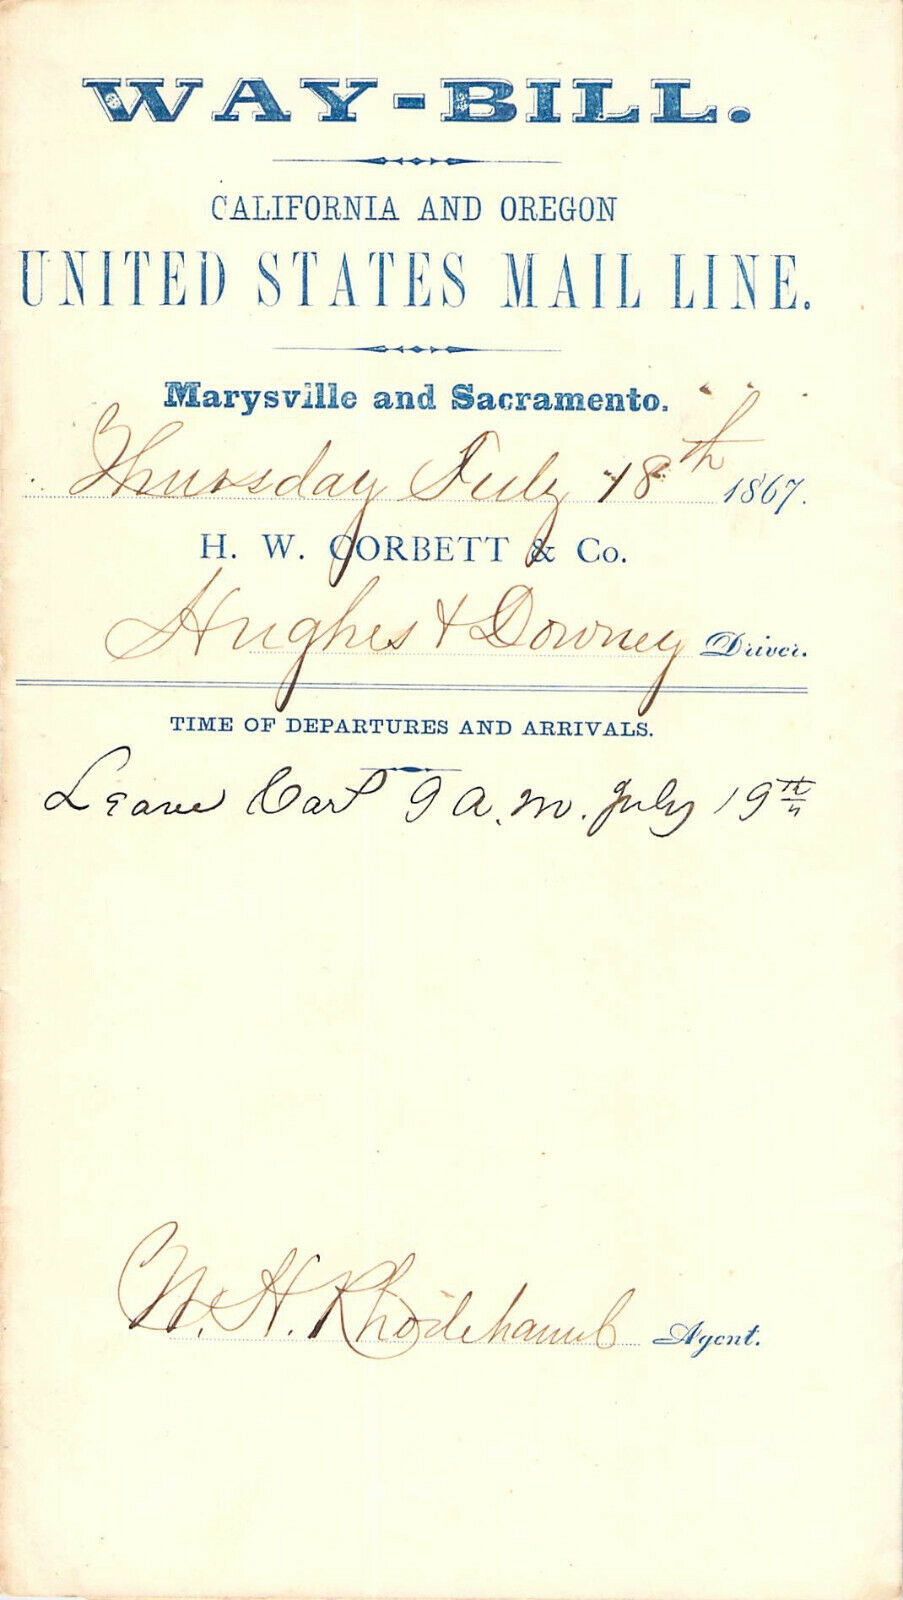 WAY-BILL.
CALIFORNIA AND OREGON
UNITED STATES MAIL LINE.
Marysville and Sacramento.
Thursday July 18th 1867.
H. W. CORBETT & Co.
Hughes & Downey Driver.
TIME OF DEPARTURES AND ARRIVALS.
Leave 9 a.m. July 19th
W. H. Rhodehamel Agent.